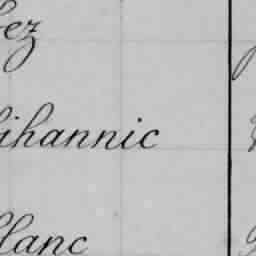 ez
ihannic
lanc